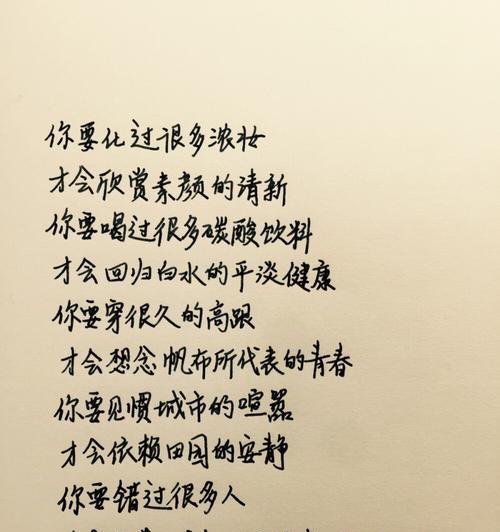 你要化过很多浓妆
才会欣赏素颜的清新
你要喝过很多碳酸饮料
才会回归白水的平淡健康
你要穿很久的高跟
才会想念帆布所代表的青春
你要见惯城市的喧嚣
才会依赖田园的安静
你要错过很多人